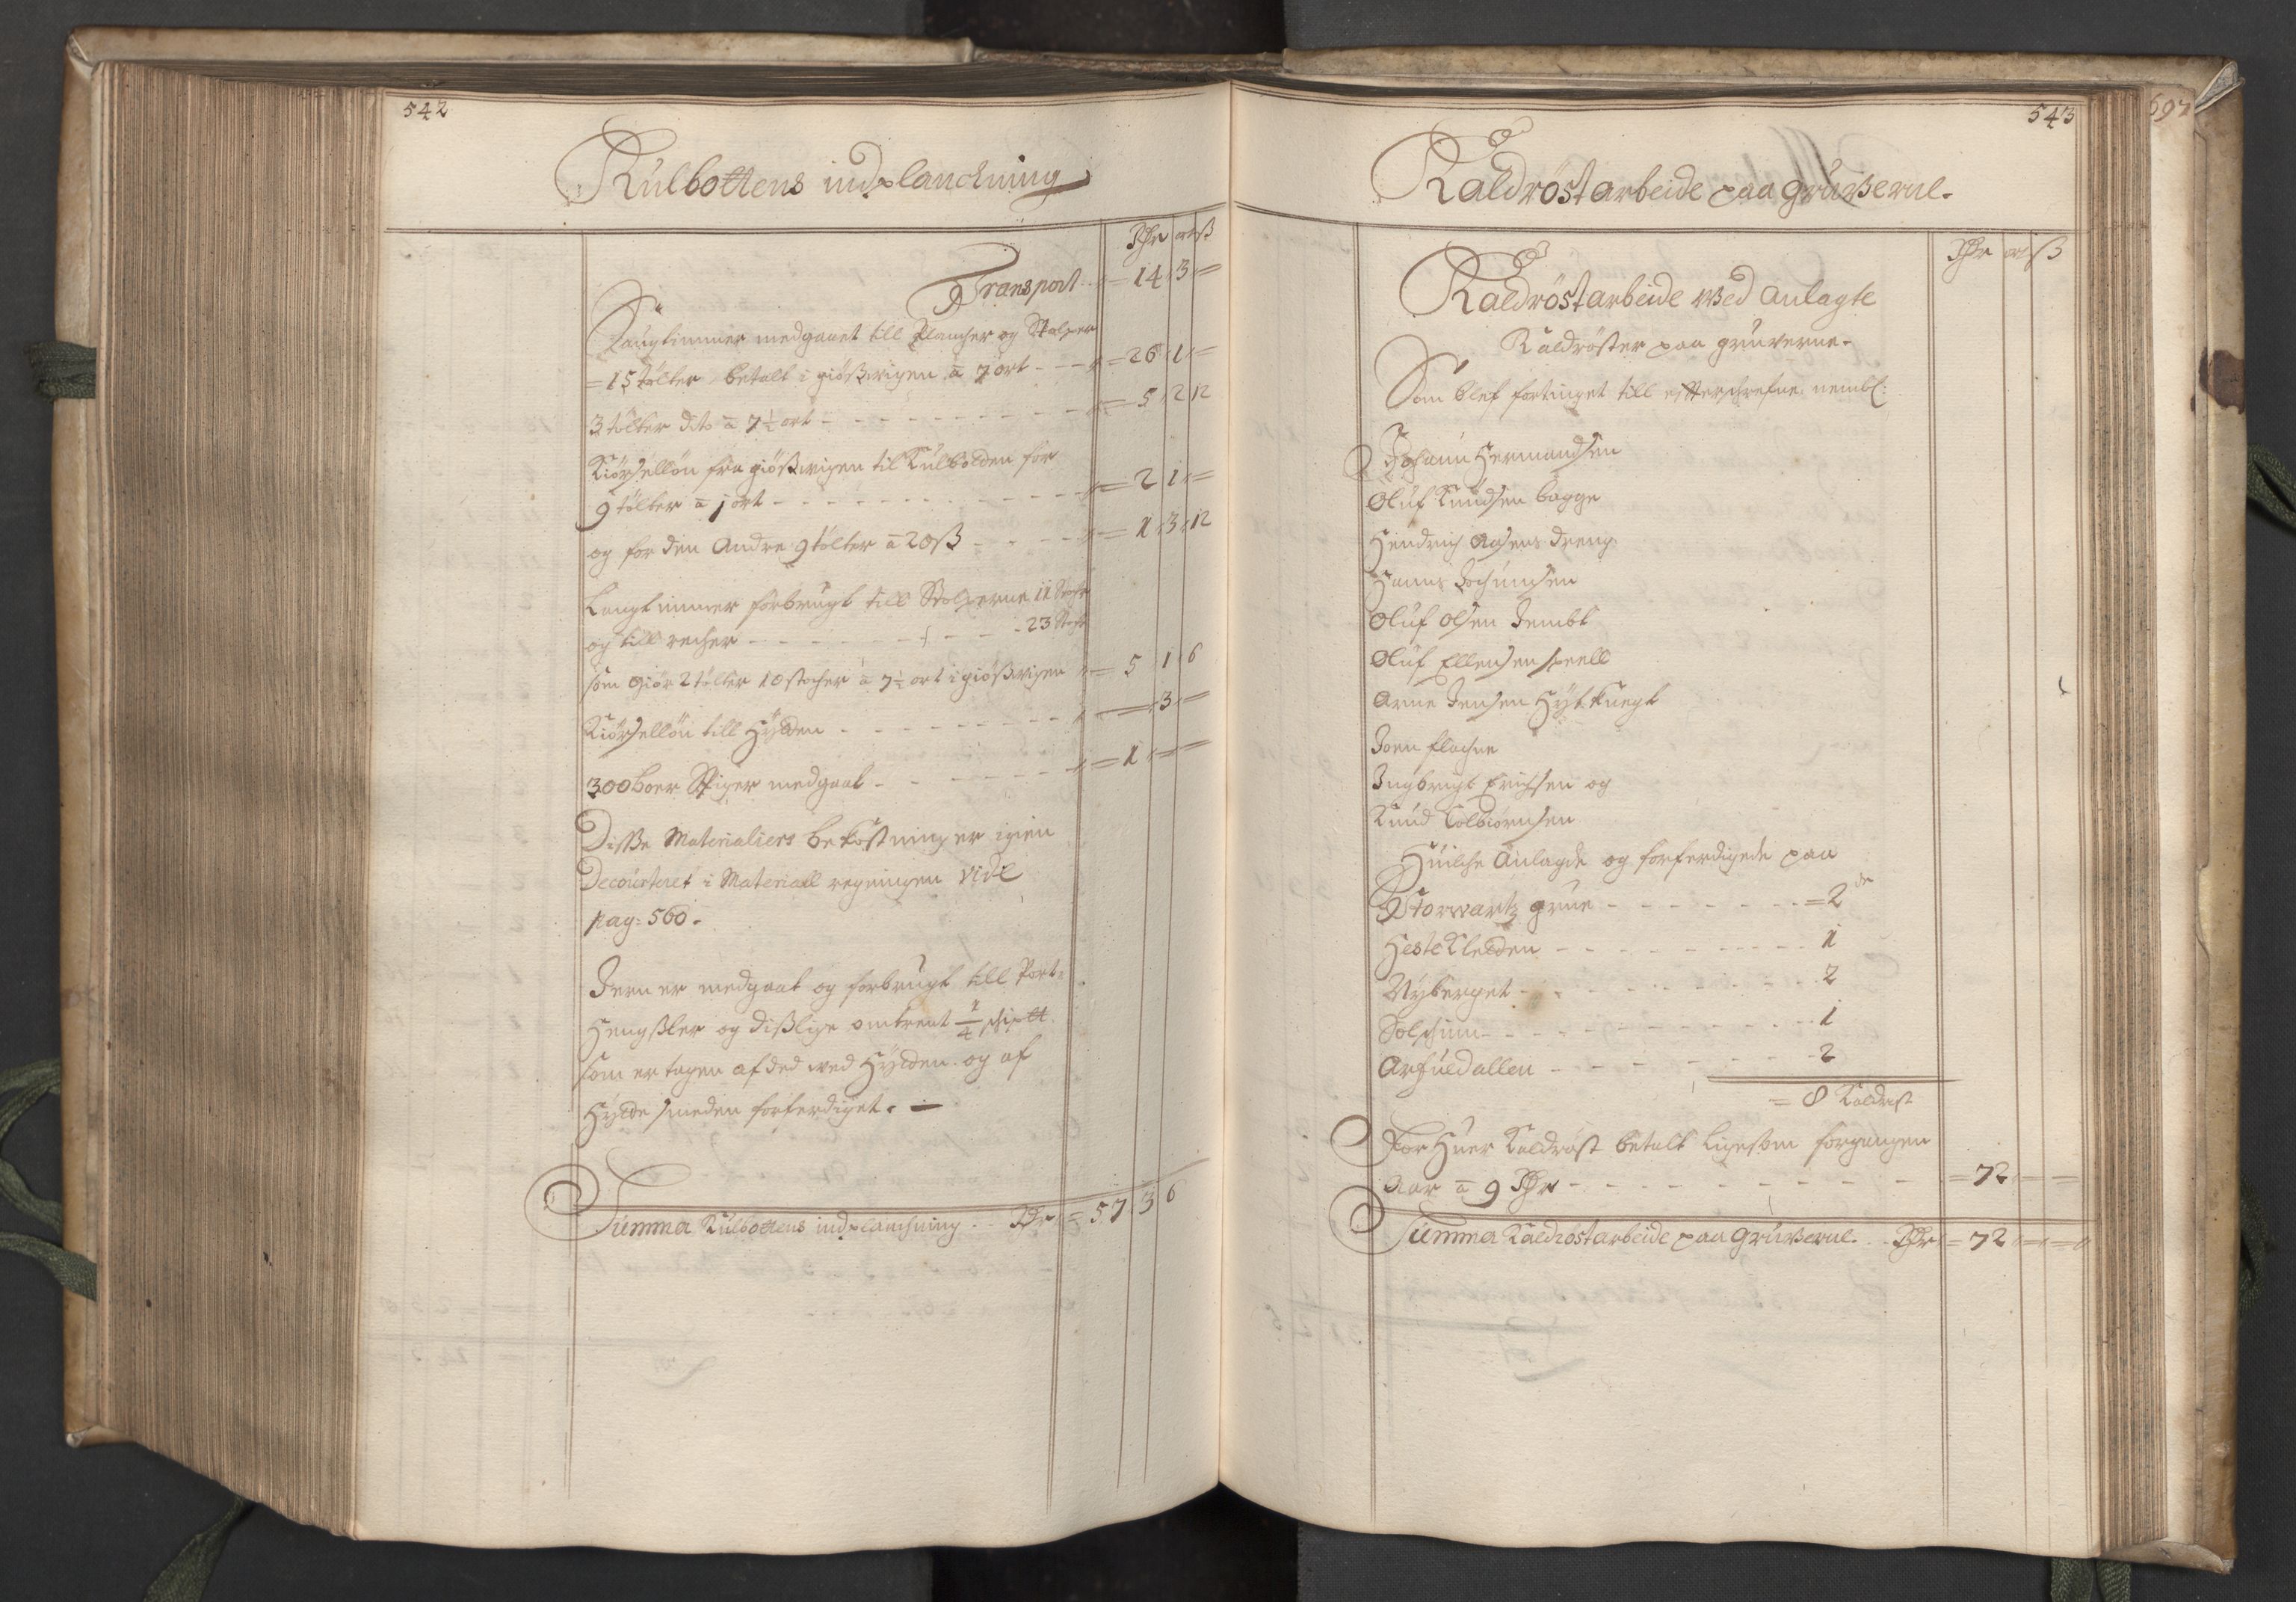 542
Kulbottens indplanckning
Rdr ort ß
Transport - 14 3 =
Saugtimmer medgaaet till Plancher og Stolper
= 15 tølter betalt i giøßvigen a 7 ort - - - 26 1 =
3 tølter dito a 7½ ort - - - 5 2 12
Kiørselløn fra giøßvigen til Kulbodden for
9 tølter a 1 ort - - - 2 1 =
og for den Andre 9 tølter a 20 ß - - - 1 3 12
Langtimmer forbrugt till Stolperne 11 Stocher
og till recher - - - 23 Stocher
som Giør 2 tølter 10 stocher a 7½ ort i giøßvigen = 5 1 6
Kiørselløn till Hytten - - - 3 =
300 boer Spiger medgaat - - - = 1 = =
Disse Materialiers bekostning er igien
Decourteret i Materiall regningen vide
pag: 560.
Jern er medgaat og forbrugt till Port=
Hengßler og dißlige omtrent ¼ schiptt
som er tagen af ded ved Hytten og af
Hytte smeden forferdiget. —
Summa Kulbottens indplanchning - Rdr = 57 3 6
543
697
Kaldrøstarbeide paa gruverne.
Rdr ort ß
Kaldrøstarbeide ved anlagte
Kaldrøster paa gruverne.
Som blef fortinget till efterschrefne nembl:
Johann Hermandsen
Oluf Knudsen bagge
Hendrich Aasens dreng
Hanns Jochumsen
Oluf Olsen Jembt
Oluf Ellensen spell
Arne Jensen Hytknegt
Joen flachne
Ingbrigt Erichsen og
Knud Colbiørnsen
Huilche Anlagde og forferdigede paa
Storwartz grue - - - = 2 de
Hestekletten - - - 1
Nyberget - - - 2
Solschinn - - - 1
Arfuedallen - - - 2
= 8 Kaldrøst
For Huer Kaldrøst betalt ligesom forgangen
Aar a 9 Rdr - - - = 72 = =
Summa Kaldrøstarbeide paa gruverne. Rdr = 72 = =